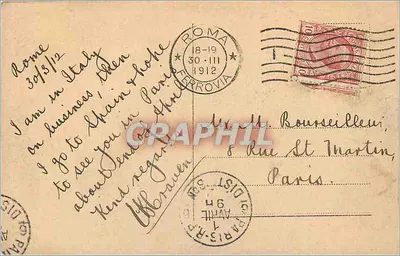 Rome
30/3/12
I am in Italy
on business, then
I go to Spain & hope
to see you in Paris
about end of April
Kind regards
Craven
ROMA
18-19
30·III
1912
FERROVIA
Mr. M. Bourseilleur,
8 Rue St Martin,
Paris.
PARIS
1
AVRIL
9H
DIST
CRAPHIL